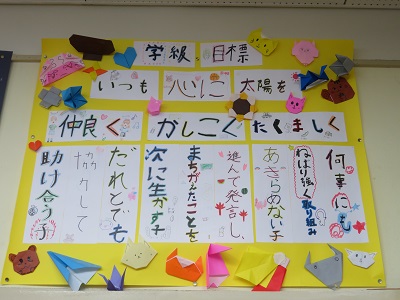 学級 目標
いつも 心に 太陽を
仲良く かしこく たくましく
何事にも
ねばり強く取り組み
あきらめない子
進んで発言し、
まちがえたことを
次に生かす子
だれとでも
協力して
助け合う子